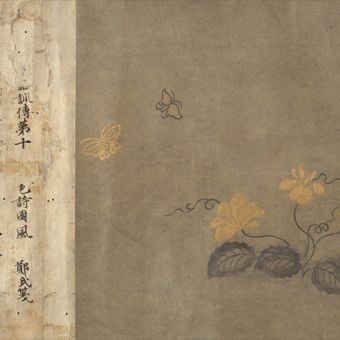 訓傳第十 毛詩國風 鄭氏箋